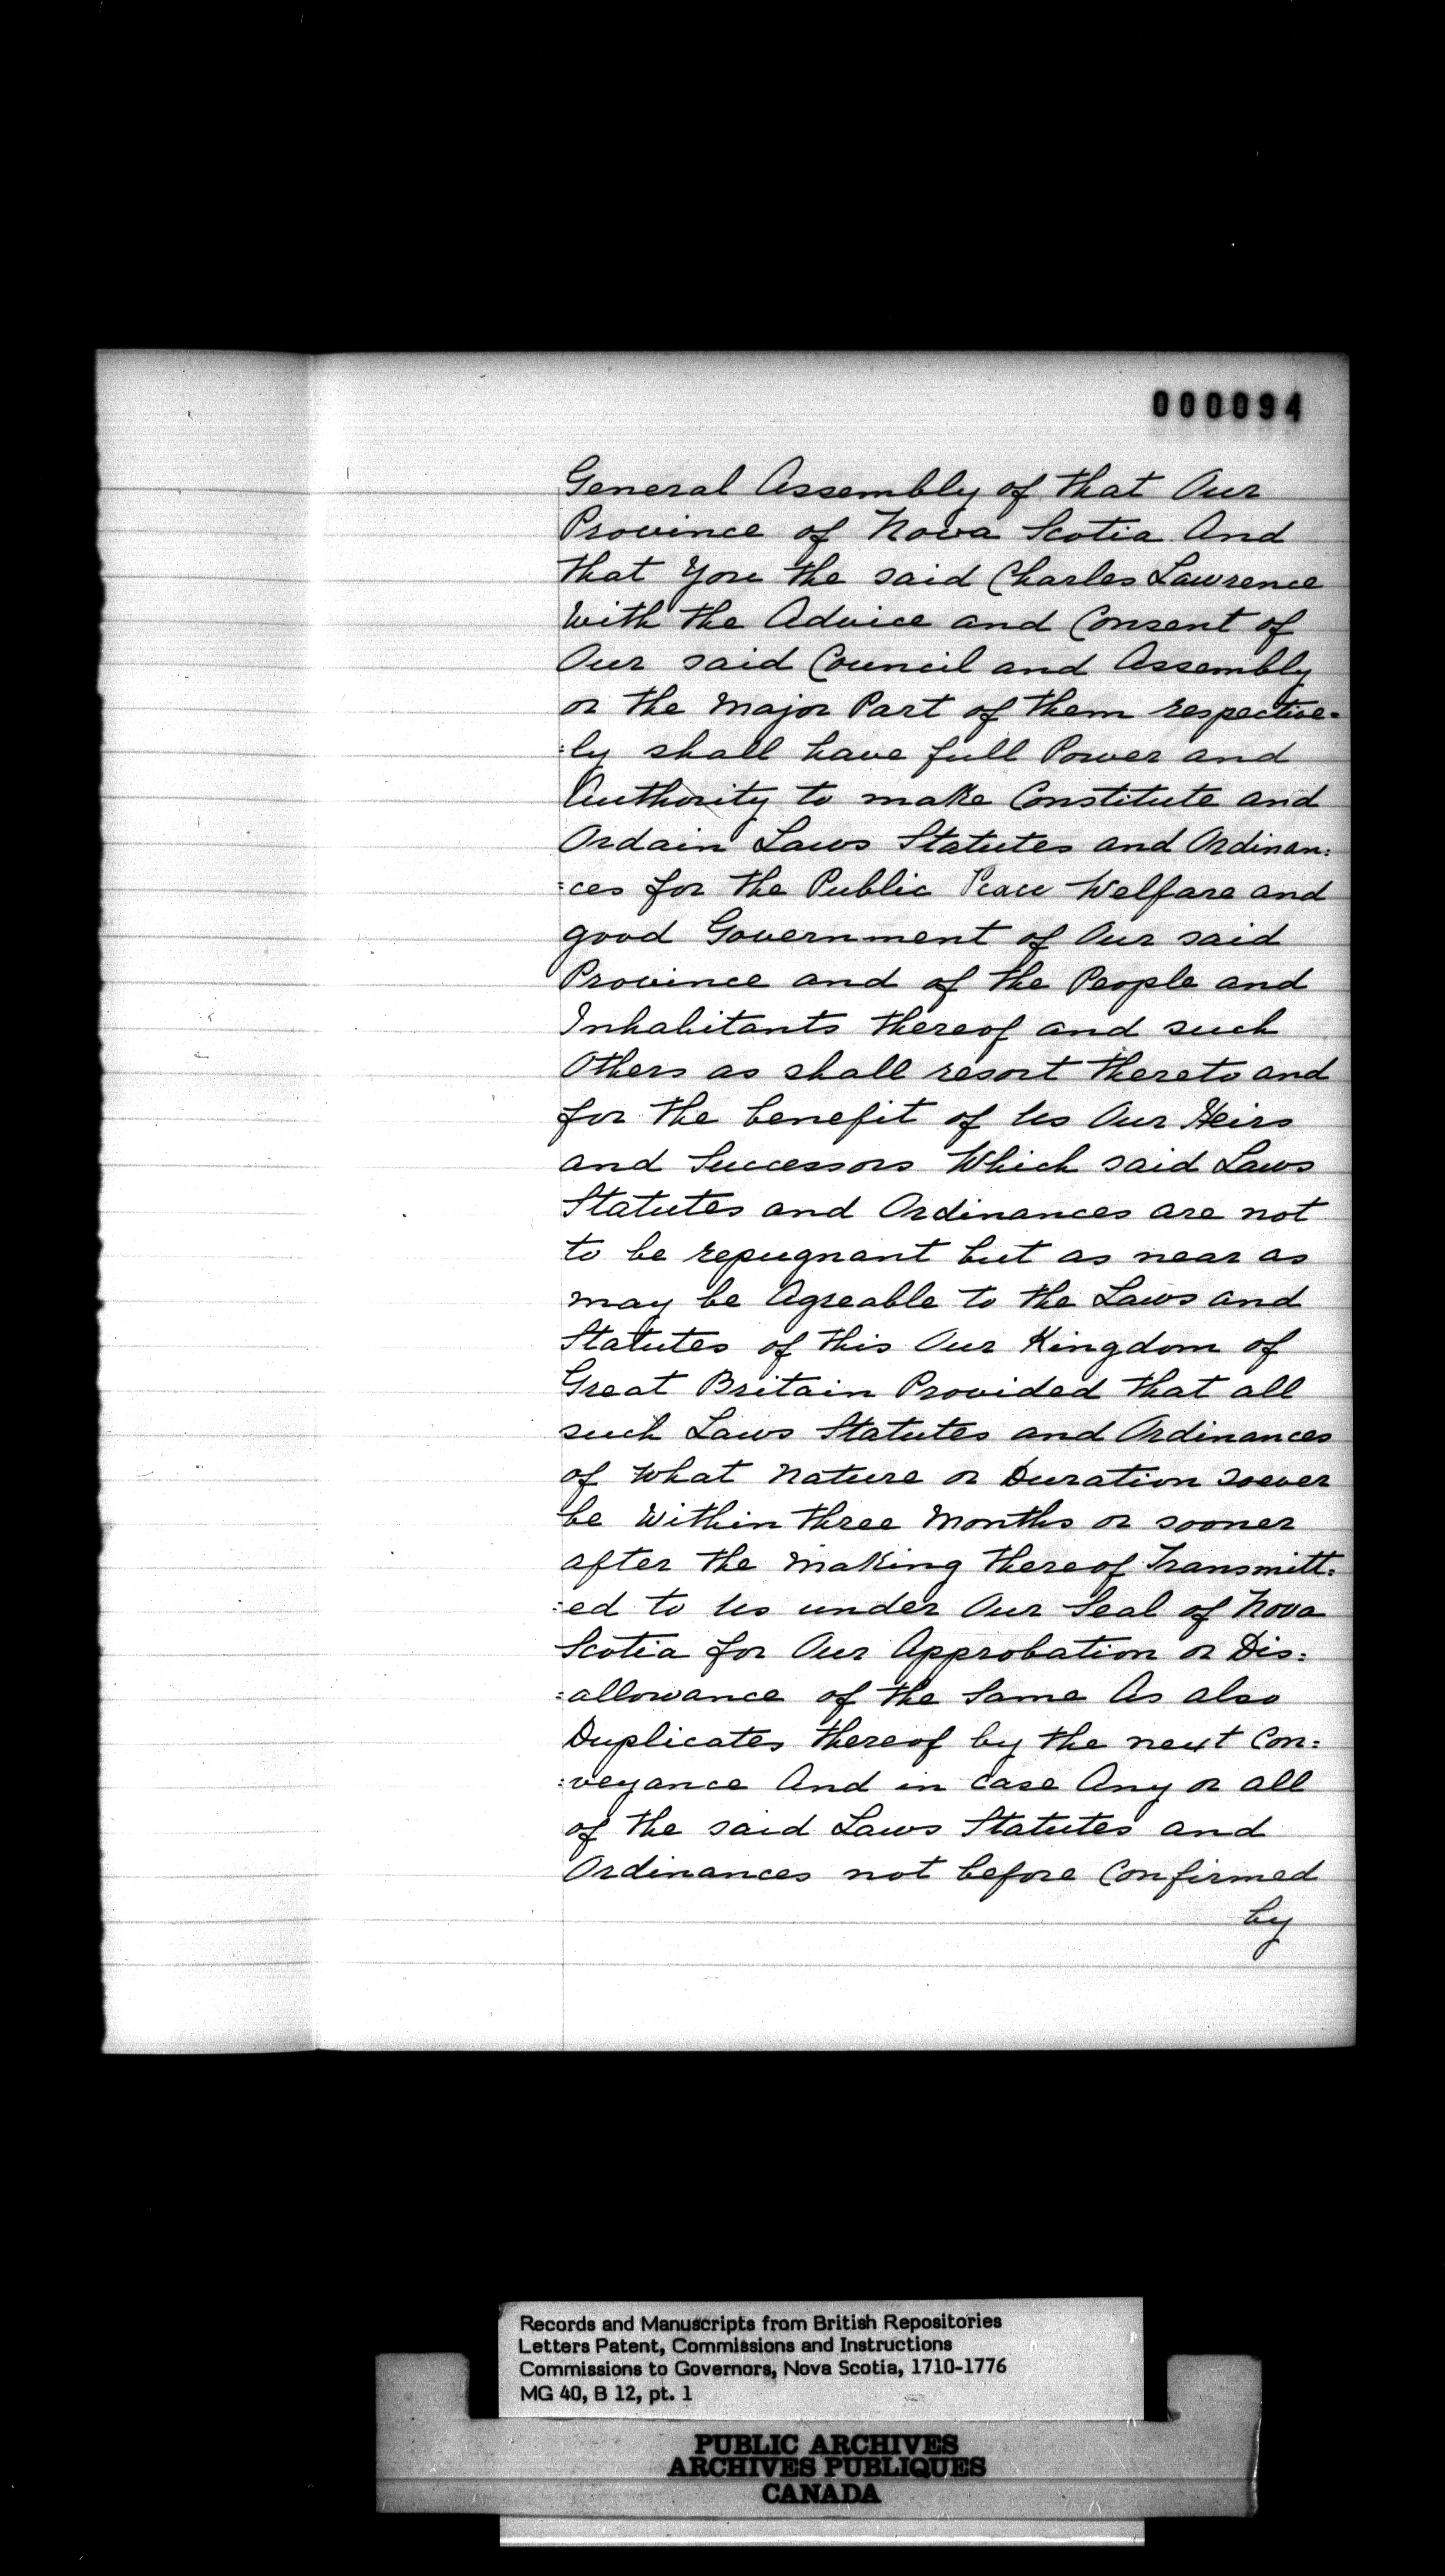 000094
General Assembly of that Our
Province of Nova Scotia And
that You the said Charles Lawrence
with the Advice and Consent of
Our said Council and Assembly
or the Major Part of them respective=
=ly shall have full Power and
Authority to make Constitute and
Ordain Laws Statutes and Ordinan=
=ces for the Public Peace Welfare and
good Government of Our said
Province and of the People and
Inhabitants thereof and such
Others as shall resort thereto and
for the benefit of Us Our Heirs
and Successors Which said Laws
Statutes and Ordinances are not
to be repugnant but as near as
may be Agreable to the Laws and
Statutes of this Our Kingdom of
Great Britain Provided that all
such Laws Statutes and Ordinances
of what Nature or Duration soever
be Within three Months or sooner
after the Making thereof Transmitt=
=ed to Us under Our Seal of Nova
Scotia for Our Approbation or Dis=
=allowance of the Same As also
Duplicates thereof by the next Con=
=veyance And in case Any or all
of the said Laws Statutes and
Ordinances not before Confirmed
by
Records and Manuscripts from British Repositories
Letters Patent, Commissions and Instructions
Commissions to Governors, Nova Scotia, 1710-1776
MG 40, B 12, pt. 1
PUBLIC ARCHIVES
ARCHIVES PUBLIQUES
CANADA